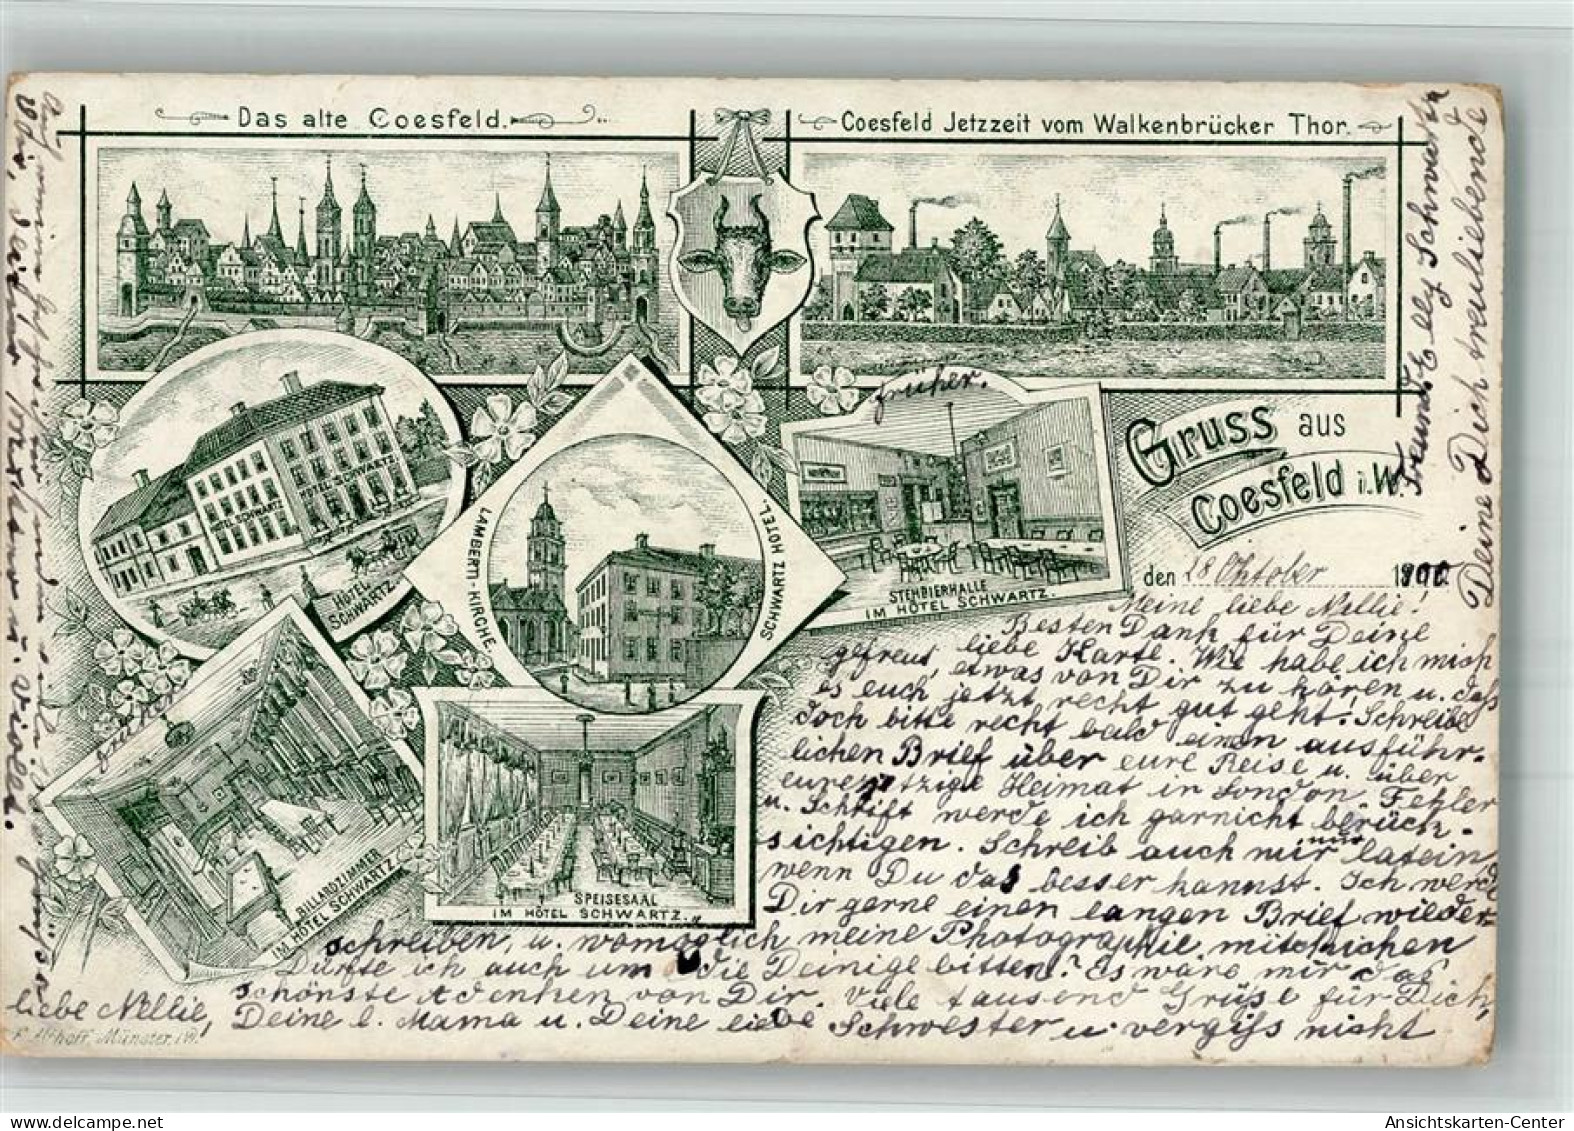 Das alte Coesfeld.
Coesfeld Jetzzeit vom Walkenbrücker Thor.
früher.
Gruss aus
Coesfeld i.W.
HOTEL SCHWARTZ
HOTEL SCHWARTZ
HÔTEL
SCHWARTZ.
LAMBERTI-KIRCHE
SCHWARTZ HOTEL.
STEHBIERHALLE
IM HÔTEL SCHWARTZ.
früher
BILLARDZIMMER
IM HÔTEL SCHWARTZ.
SPEISESAAL
IM HÔTEL SCHWARTZ.
den 18. Oktober 1900.
Meine liebe Nellie!
Besten Dank für Deine
liebe Karte. Wie habe ich mich
gefreut, etwas von Dir zu hören u. daß
es euch jetzt recht gut geht! Schreibe
doch bitte recht bald einen ausführ-
lichen Brief über eure Reise u. über
eure jetzige Heimat in London. Fehler
u. Schrift werde ich garnicht berück-
sichtigen. Schreib auch mir nur latein
wenn Du das besser kannst. Ich werde
Dir gerne einen langen Brief wieder-
schreiben, u. womöglich meine Photographie mitschicken
Dürfte ich auch um die Deinige bitten? Es wäre mir das
schönste Adenken von Dir. Viele tausend Grüße für Dich,
Deine l. Mama u. Deine liebe Schwester u. vergiß nicht
Deine Dich treuliebende
Freundin Elly Schwartz
liebe Nellie,
F. Althoff, Münster i/W.
Ansichtskarten-Center